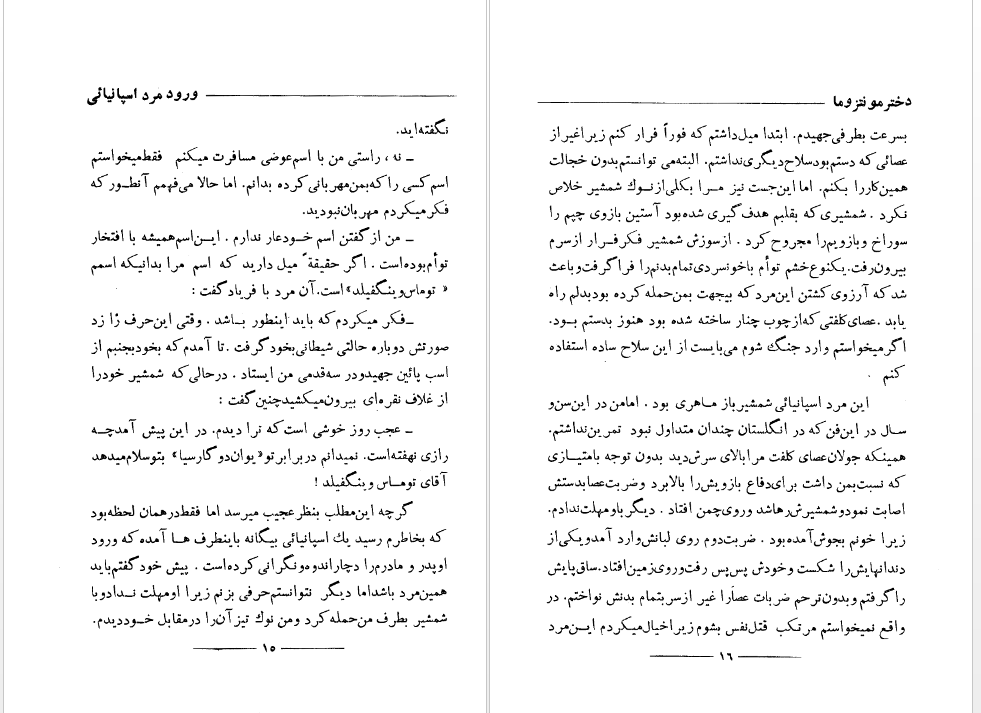 ورود مرد اسپانیائی
نگفته‌اید.
ـ نه ، راستی من با اسم عوضی مسافرت میکنم فقط میخواستم
اسم کسی را که بمن مهربانی کرده بدانم. اما حالا می‌فهمم آنطور که
فکر میکردم مهربان نبودید.
ـ من از گفتن اسم خود عار ندارم . این اسم همیشه با افتخار
توأم بوده است . اگر حقیقةً میل دارید که اسم مرا بدانید که اسمم
« توماس وینگفیلد» است. آن مرد با فریاد گفت :
ـ فکر میکردم که باید اینطور باشد . وقتی این حرف را زد
صورتش دوباره حالتی شیطانی بخود گرفت . تا آمدم که بخود بجنبم از
اسب پائین جهید و در سه قدمی من ایستاد . در حالی که شمشیر خود را
از غلاف نقره‌ای بیرون میکشید چنین گفت :
ـ عجب روز خوشی است که ترا دیدم. در این پیش آمد چه
رازی نهفته است. نمیدانم در برابر تو «یوان دو گارسیا» بتو سلام میدهد
آقای توماس وینگفیلد !
گرچه این مطلب بنظر عجیب میرسد اما فقط در همان لحظه بود
که بخاطرم رسید یك اسپانیائی بیگانه باینطرف ها آمده که ورود
او پدر و مادرم را دچار اندوه و نگرانی کرده است . پیش خود گفتم باید
همین مرد باشد اما دیگر نتوانستم حرفی بزنم زیرا او مهلت نداد و با
شمشیر بطرف من حمله کرد و من نوك تیز آن را در مقابل خود دیدم.
۱۵
دختر مونتزوما
بسرعت بطرفی جهیدم. ابتدا میل داشتم که فوراً فرار کنم زیرا غیر از
عصائی که دستم بود سلاح دیگری نداشتم. البته می توانستم بدون خجالت
همین کار را بکنم. اما این جست نیز مرا بکلی از نوك شمشیر خلاص
نکرد . شمشیری که بقلبم هدف گیری شده بود آستین بازوی چپم را
سوراخ و بازویم را مجروح کرد . از سوزش شمشیر فکر فرار از سرم
بیرون رفت. یکنوع خشم توأم با خونسردی تمام بدنم را فرا گرفت و باعث
شد که آرزوی کشتن این مرد که بیجهت بمن حمله کرده بود بدلم راه
یابد . عصای کلفتی که از چوب چنار ساخته شده بود هنوز بدستم بود.
اگر میخواستم وارد جنگ شوم می‌بایست از این سلاح ساده استفاده
کنم .
این مرد اسپانیائی شمشیر باز ماهری بود . اما من در این سن و
سال در این فن که در انگلستان چندان متداول نبود تمرین نداشتم.
همینکه جولان عصای کلفت مرا بالای سرش دید بدون توجه بامتیازی
که نسبت بمن داشت برای دفاع بازویش را بالا برد و ضربت عصا بدستش
اصابت نمود و شمشیرش رها شد و روی چمن افتاد . دیگر باو مهلت ندادم.
زیرا خونم بجوش آمده بود . ضربت دوم روی لبانش وارد آمد و یکی از
دندانهایش را شکست و خودش پس پس رفت و روی زمین افتاد. ساق پایش
را گرفتم و بدون ترحم ضربات عصا را غیر از سر بتمام بدنش نواختم. در
واقع نمیخواستم مرتکب قتل نفس بشوم زیرا خیال میکردم این مرد
۱۶